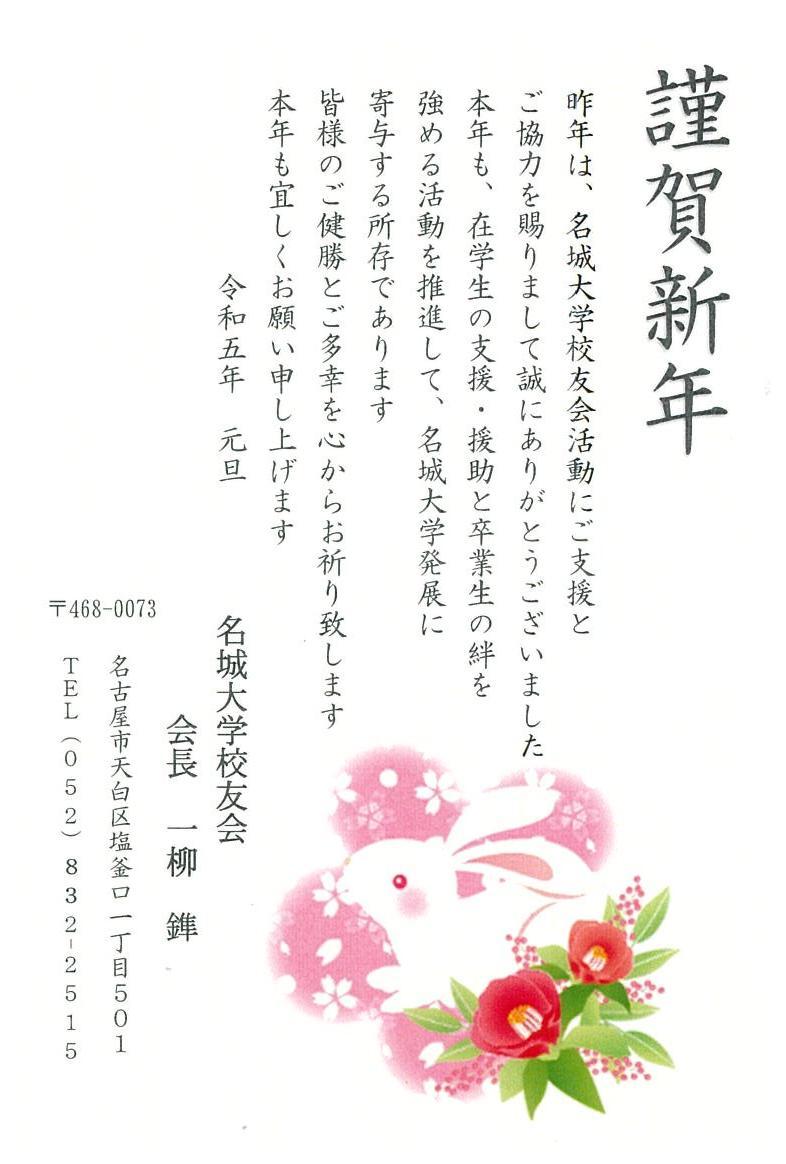 謹賀新年
昨年は、名城大学校友会活動にご支援と
ご協力を賜りまして誠にありがとうございました
本年も、在学生の支援・援助と卒業生の絆を
強める活動を推進して、名城大学発展に
寄与する所存であります
皆様のご健勝とご多幸を心からお祈り致します
本年も宜しくお願い申し上げます
令和五年　元旦
名城大学校友会
会長　一柳　鋒
〒468-0073
名古屋市天白区塩釜口一丁目501
TEL(052)832-2515